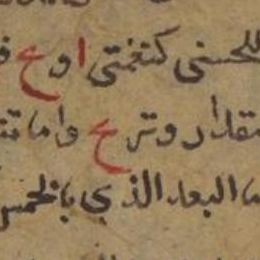 اللحسنى كنغمتى ا و ح
مقدار وتر ح واما
ما البعد الذى بالخمس